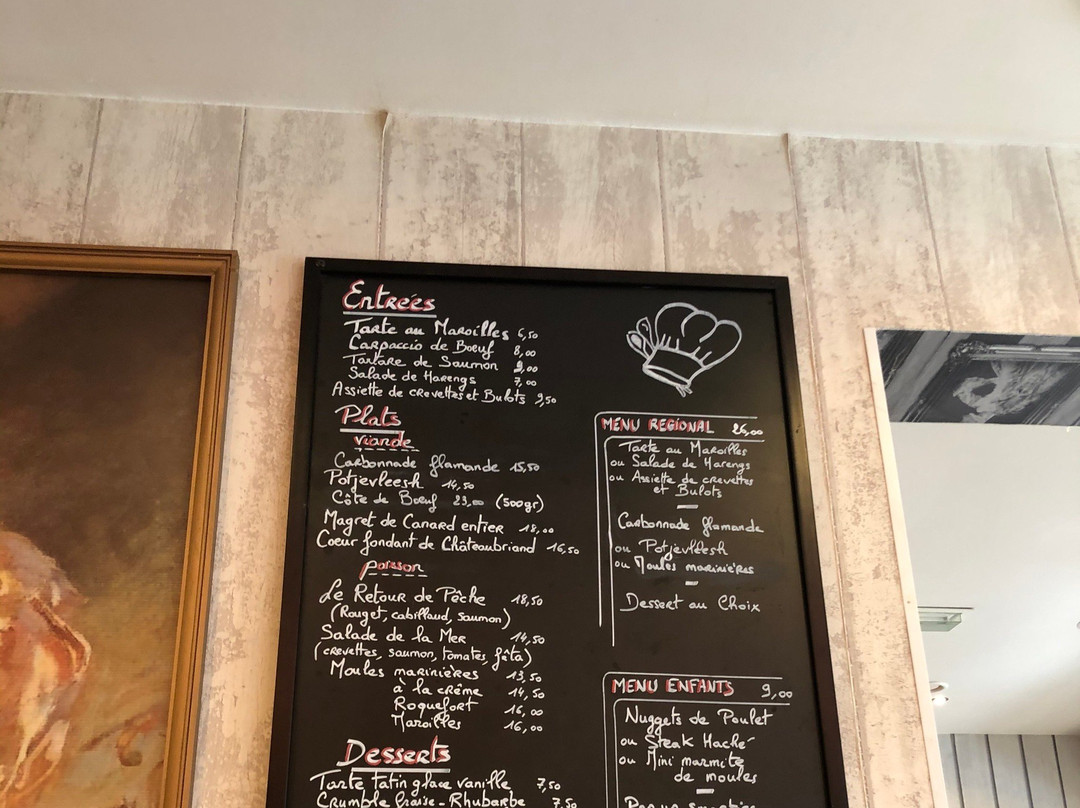 Entrées
Tarte au Maroilles 6,50
Carpaccio de Boeuf 8,00
Tartare de Saumon 9,00
Salade de Harengs 7,00
Assiette de crevettes et Bulots 9,50
Plats
viande
Carbonnade flamande 15,50
Potjevleesh 14,50
Côte de Boeuf 23,00 (500gr)
Magret de Canard entier 18,00
Coeur fondant de Châteaubriand 16,50
poisson
Le Retour de Pêche 18,50
(Rouget, cabillaud, saumon)
Salade de la Mer 14,50
(crevettes, saumon, tomates, fêta)
Moules marinières 13,50
à la crême 14,50
Roquefort 16,00
Maroilles 16,00
Desserts
Tarte Tatin glace vanille 7,50
Crumble fraise - Rhubarbe 7,50
MENU REGIONAL 26,00
Tarte au Maroilles
ou Salade de Harengs
ou Assiette de crevettes
et Bulots
Carbonnade flamande
ou Potjevleesh
ou Moules marinières
Dessert au Choix
MENU ENFANTS 9,00
Nuggets de Poulet
ou Steak Haché
ou Mini marmite
de moules